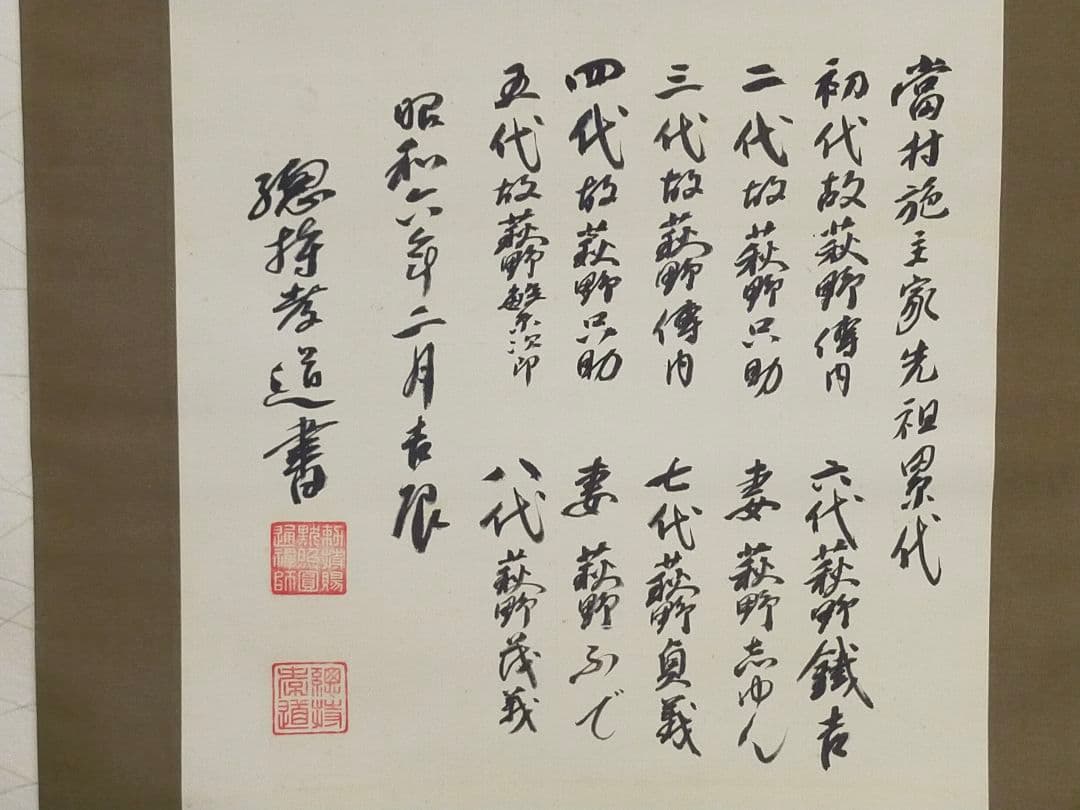 當村施主家先祖累代
初代故萩野傳内
二代故萩野只助
三代故萩野傳内
四代故萩野只助
五代故萩野繁次郎
六代萩野鐵吉
妻萩野志ゆん
七代萩野貞義
妻萩野ふで
八代萩野茂義
昭和六年二月吉辰
總持孝道書
勅特賜
黙照圓
通禪師
總持
孝道